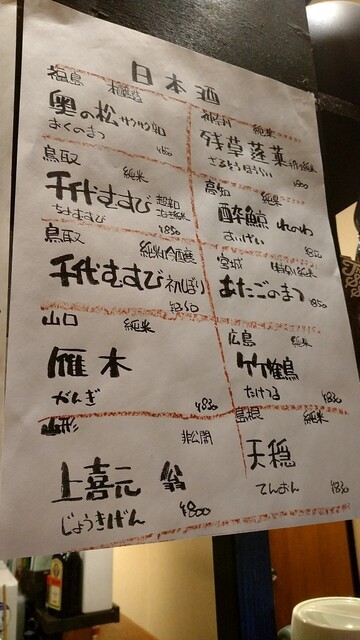 日本酒
福島 本醸造
奥の松 サクサク辛口
おくのまつ
鳥取 純米
千代むすび
ちよむすび ¥850
鳥取 純米吟醸
千代むすび 初しぼり
山口 純米
雁木
がんぎ ¥830
山形 非公開
上喜元 翁
じょうきげん ¥800
神奈川 純米
残草蓬莱
ざるそうほうらい
高知 純米
酔鯨 れのわ
すいげい
宮城 特別純米
あたごのまつ ¥850
広島 純米
竹鶴
たけつる ¥830
島根 純米
天穏
てんおん ¥830